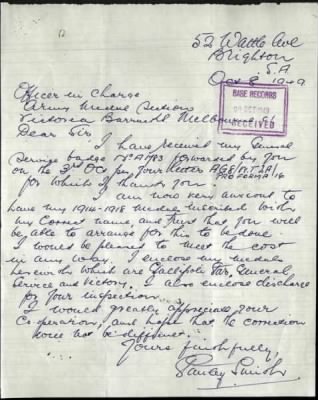 52 Wattle Ave
Brighton
S.A
Oct 8 1949
BASE RECORDS
OCT 1949
RECEIVED
Officer in Charge
Army Medal Section
Victoria Barracks Melbourne
Dear Sir
I have received my General
Service badge No A1793 forwarded by you
on the 3rd Oct per your letter
for which I thank you.
I am now very anxious to
have my 1914-1918 medals inscribed with
my correct name and trust that you will
be able to arrange for this to be done
I would be pleased to meet the cost
in any way. I enclose my medals
herewith which are Gallipoli Star, General
Service and Victory. I also enclose discharge
for your inspection.
I would greatly appreciate your
Co-operation, and hope that the correction
will not be difficult.
Yours faithfully,
Stanley Smith